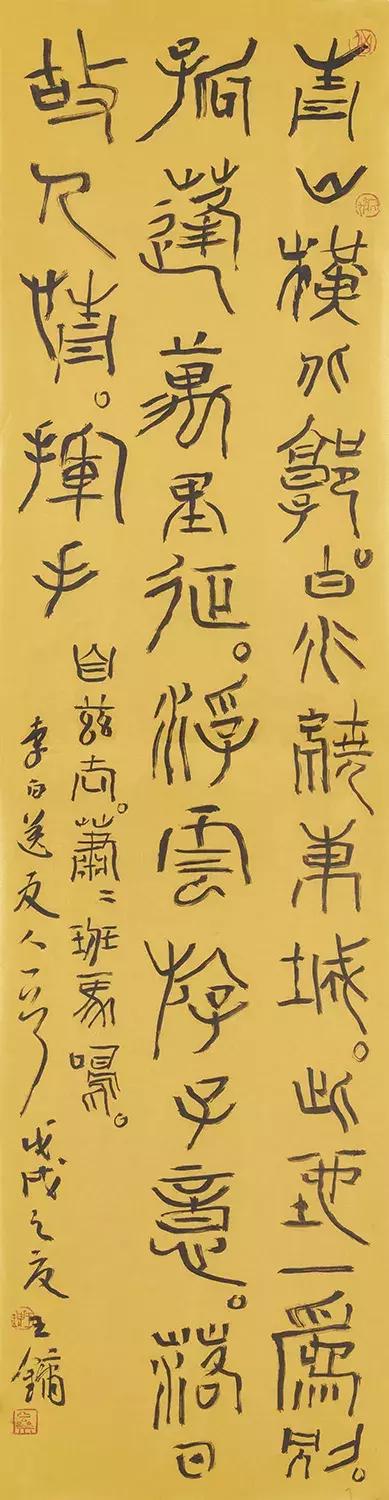 青山橫北郭。白水繞東城。此地一爲別。
孤蓬萬里征。浮雲斿子意。落日
故人情。揮手
自茲去。蕭〻班馬鳴。
李白送友人一首 戊戌之夏 王鏞